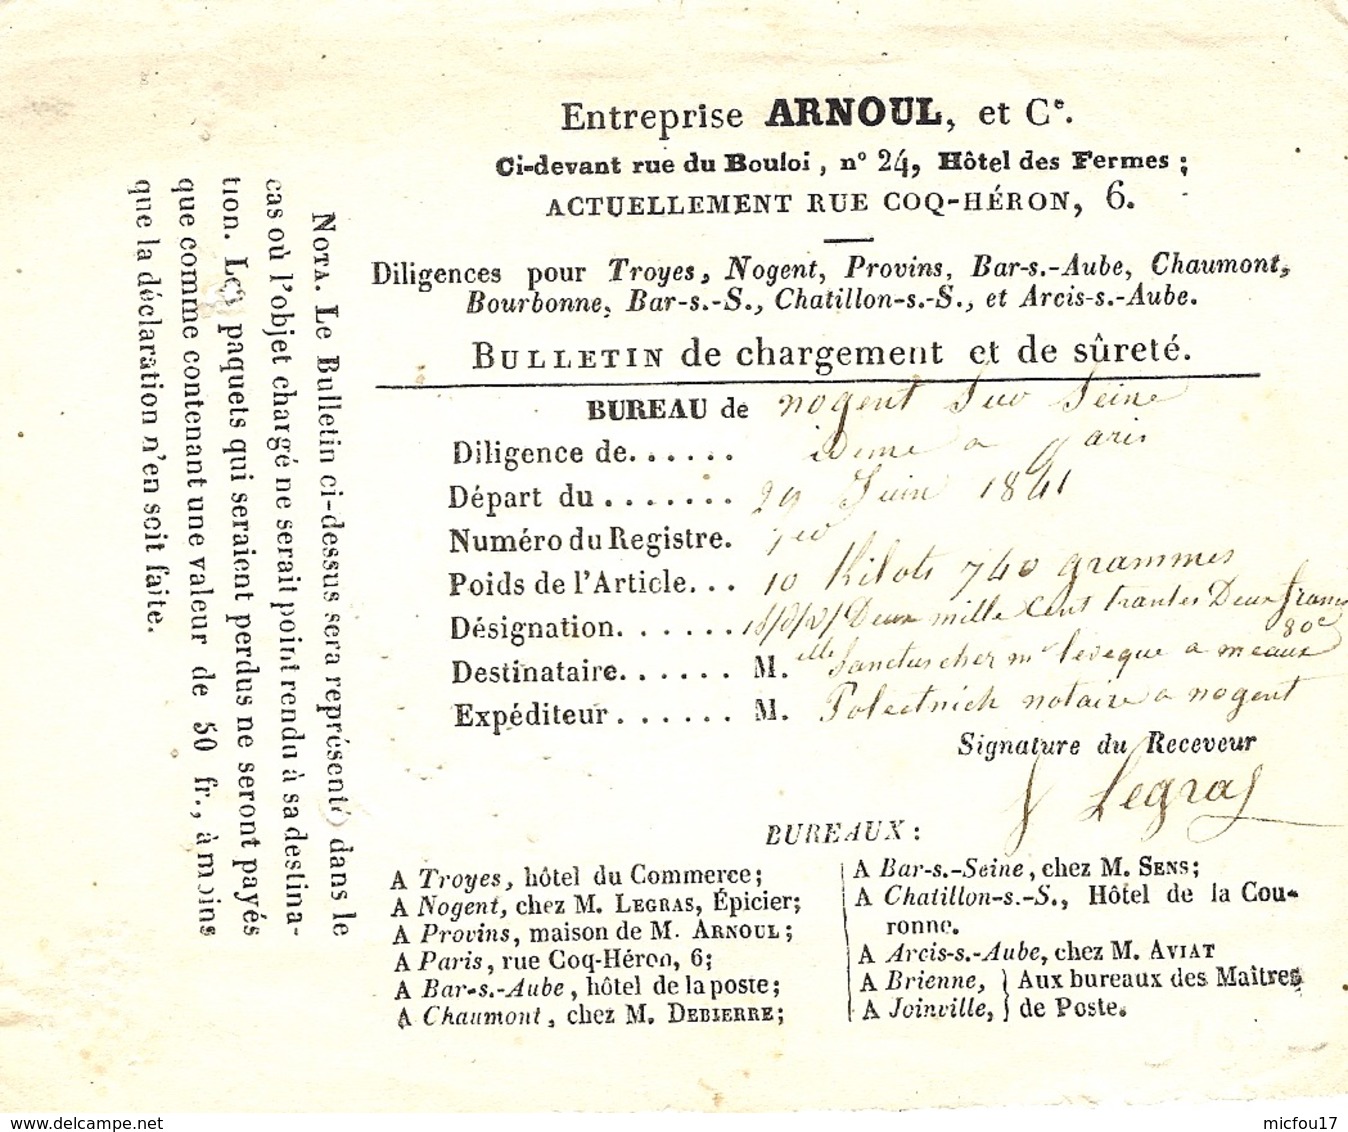 Entreprise ARNOUL, et Ce.
Ci-devant rue du Bouloi, n° 24, Hôtel des Fermes;
ACTUELLEMENT RUE COQ-HÉRON, 6.
Diligences pour Troyes, Nogent, Provins, Bar-s.-Aube, Chaumont,
Bourbonne, Bar-s.-S., Chatillon-s.-S., et Arcis-s.-Aube.
BULLETIN de chargement et de sûreté.
BUREAU de nogent Sur Seine
Diligence de...... a paris
Départ du....... 29 Juin 1841
Numéro du Registre.
Poids de l'Article... 10 Kilots 740 grammes
Désignation....... Deux mille Cent trantes Deux francs
80c
Destinataire...... M.elle cher mr leveque a meaux
Expéditeur...... M. notaire a nogent
Signature du Receveur
Legras
BUREAUX:
A Troyes, hôtel du Commerce;
A Nogent, chez M. LEGRAS, Épicier;
A Provins, maison de M. ARNOUL;
A Paris, rue Coq-Héron, 6;
A Bar-s.-Aube, hôtel de la poste;
A Chaumont, chez M. DEBIERRE;
A Bar-s.-Seine, chez M. SENS;
A Chatillon-s.-S., Hôtel de la Cou-
ronne.
A Arcis-s.-Aube, chez M. AVIAT
A Brienne, } Aux bureaux des Maîtres
A Joinville, } de Poste.
NOTA. Le Bulletin ci-dessus sera représenté dans le
cas où l'objet chargé ne serait point rendu à sa destina-
tion. Les paquets qui seraient perdus ne seront payés
que comme contenant une valeur de 50 fr., à moins
que la déclaration n'en soit faite.
www.delcampe.net
micfou17